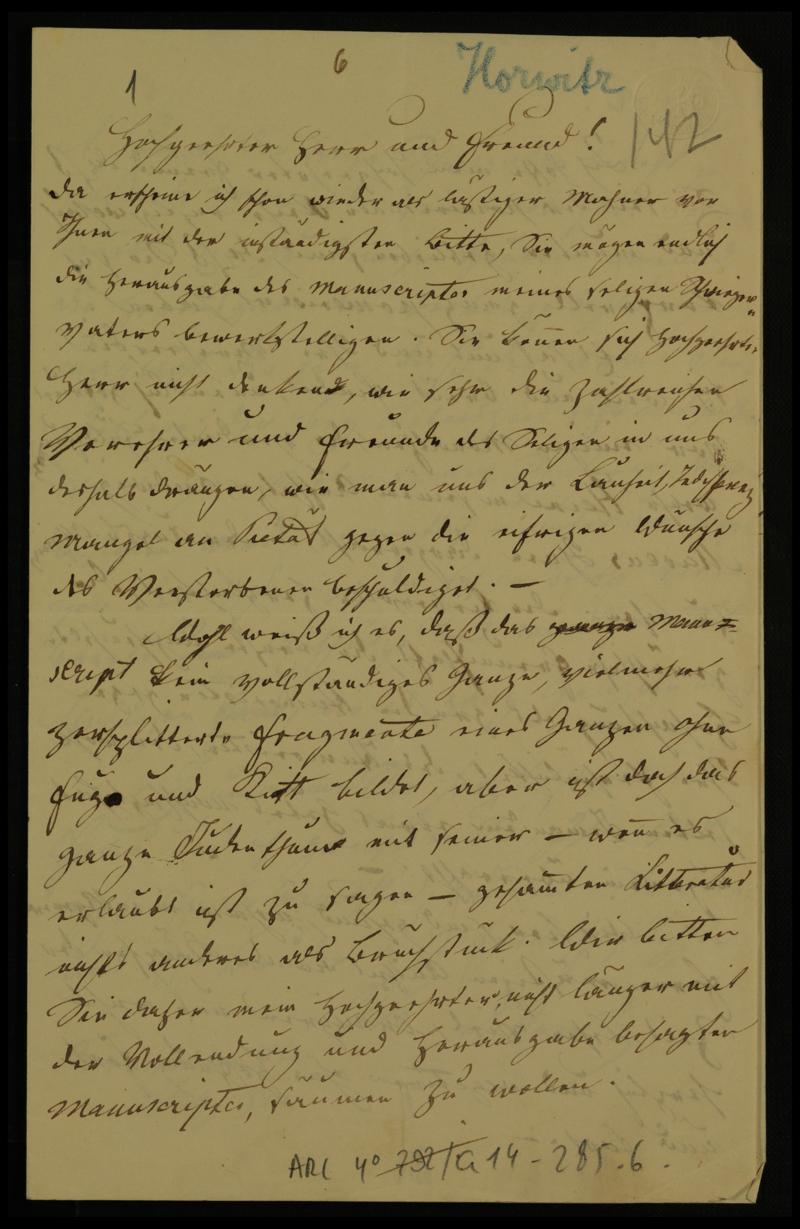 1
6
Horwitz
142
Hochgeehrter Herr und Freund!
Da erscheine ich schon wieder als lästiger Mahner vor
Ihnen mit der inständigsten Bitte, Sie mögen endlich
die Herausgabe des Manuscriptes meines seligen Schwieger=
vaters bewerkstelligen. Sie können sich Hochgeehrter
Herr nicht denken, wie sehr die zahlreichen
Verehrer und Freunde des Seligen in uns
deshalb drängen, wie man uns der Lauheit,
Mangel an Pietät gegen die eifrigen Wünsche
des Verstorbenen beschuldiget. —
Wohl weiß ich es, daß das ganze Manu=
script kein vollständiges Ganze, vielmehr
zersplitterte Fragmente eines Ganzen ohne
Fuge und Kitt bildet, aber ist doch das
ganze Judenthum mit seiner — wenn es
erlaubt ist zu sagen — gesammten Litteratur
nichts anderes als Bruchstück. Wir bitten
Sie daher mein Hochgeehrter, nicht länger mit
der Vollendung und Herausgabe besagten
Manuscriptes, säumen zu wollen.
ARC 4° 792/G 14-285.6.